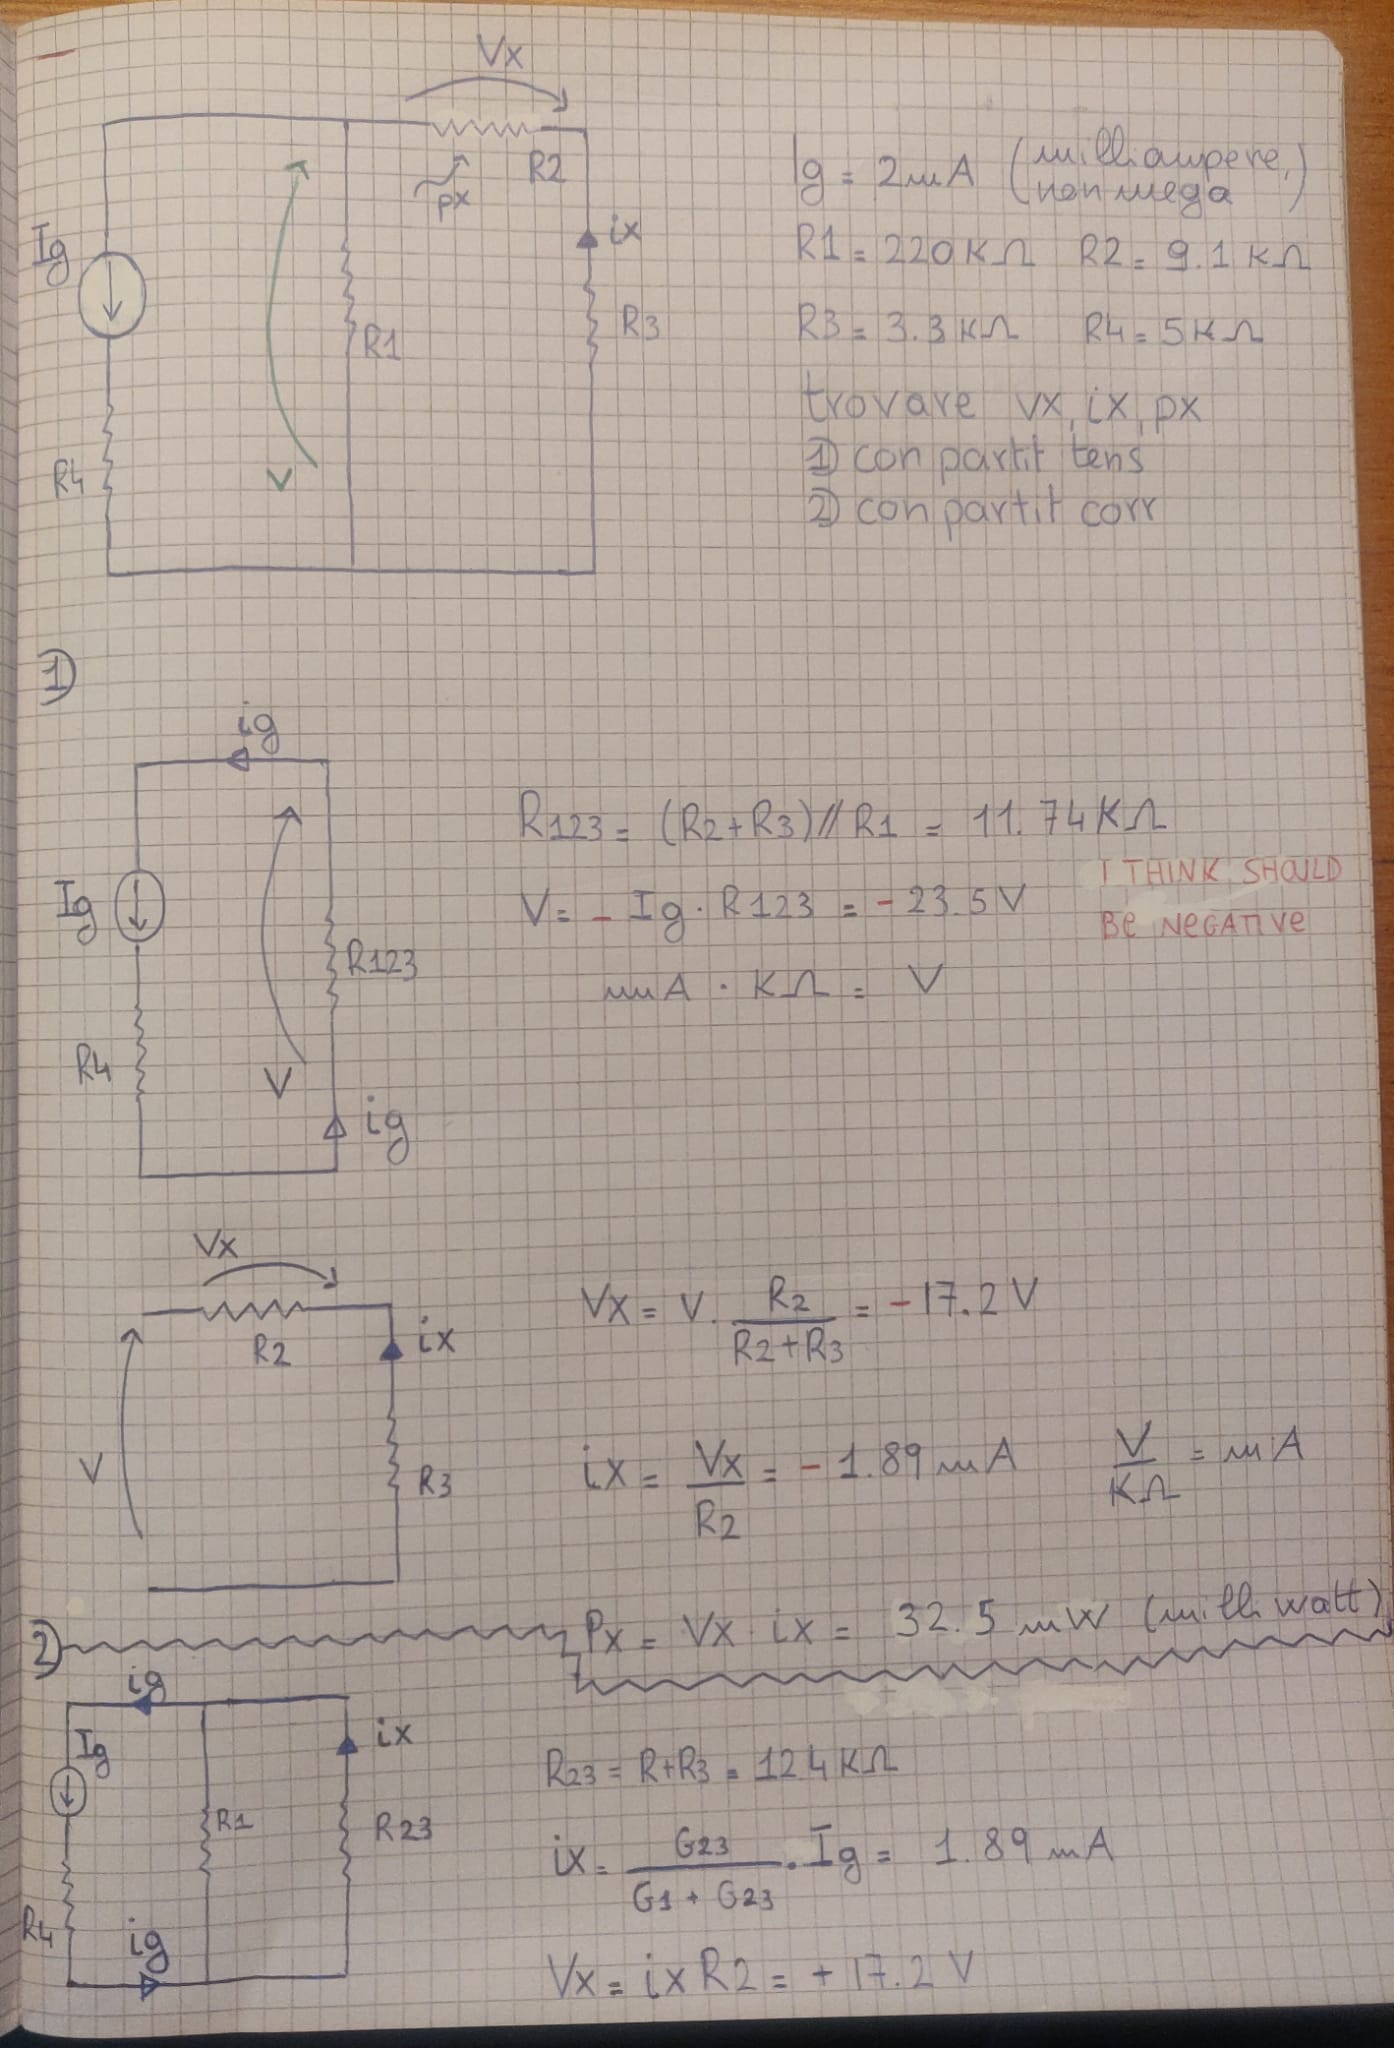 Vx
R2
px
ix
Ig
R1
R3
R4
V
Ig = 2mA (milliampere, non mega)
R1 = 220KΩ R2 = 9.1 KΩ
R3 = 3.3KΩ R4 = 5KΩ
trovare vx, ix, px
1) con partit tens
2) con partit corr
1)
ig
Ig
R123
R4
V
ig
R123 = (R2+R3)//R1 = 11.74KΩ
V = - Ig · R123 = - 23.5 V
I THINK SHOULD
Be NeGATive
mA · KΩ = V
Vx
R2
ix
V
R3
Vx = V · R2/(R2+R3) = -17.2 V
ix = Vx/R2 = - 1.89 mA V/KΩ = mA
Px = Vx · ix = 32.5 mW (milli watt)
2)
ig
Ig
ix
R1
R23
R4
ig
R23 = R+R3 = 12.4KΩ
ix = G23/(G1 + G23) · Ig = 1.89 mA
Vx = ix R2 = + 17.2 V